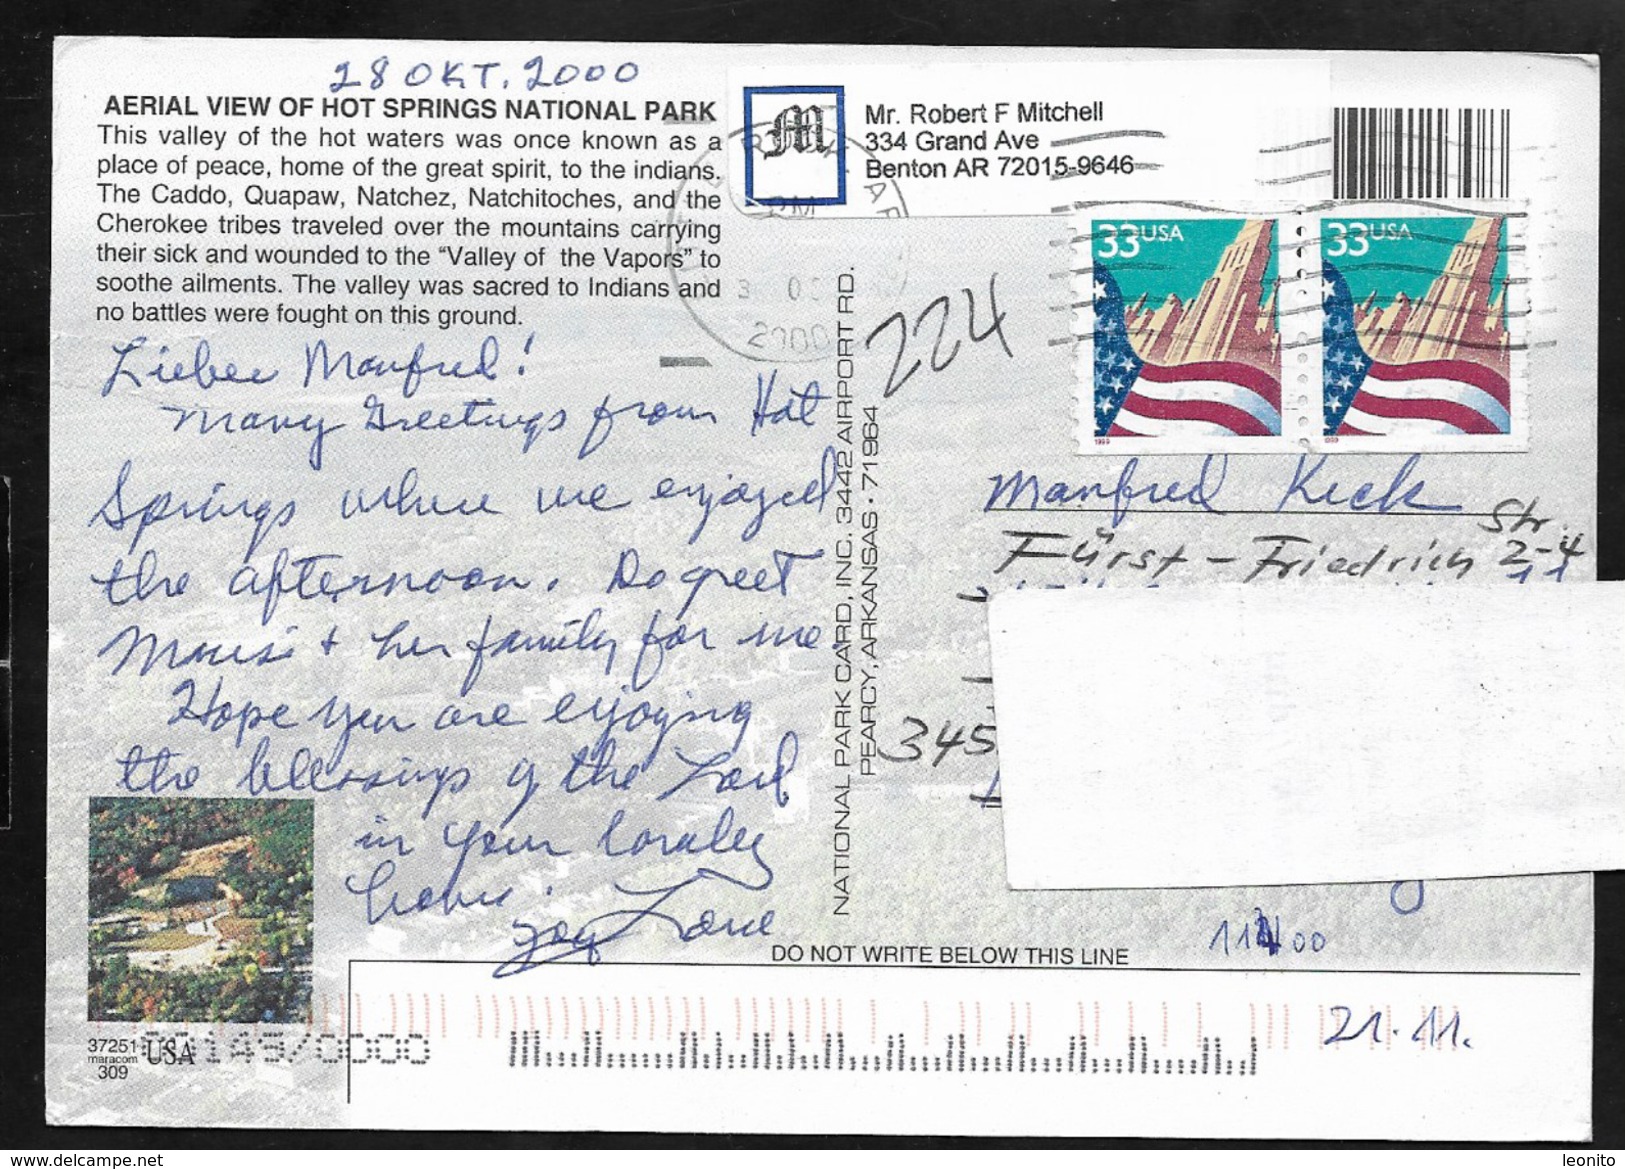 28 OKT. 2000
AERIAL VIEW OF HOT SPRINGS NATIONAL PARK
This valley of the hot waters was once known as a
place of peace, home of the great spirit, to the indians.
The Caddo, Quapaw, Natchez, Natchitoches, and the
Cherokee tribes traveled over the mountains carrying
their sick and wounded to the "Valley of the Vapors" to
soothe ailments. The valley was sacred to Indians and
no battles were fought on this ground.
Lieber Manfred!
Many Greetings from Hot
Springs where we enjoyed
the afternoon. Do greet
& her family for me
Hope you are enjoying
the blessings of the Lord
in your
home.
Love
37251
maracom
309
USA
NATIONAL PARK CARD, INC. 3442 AIRPORT RD.
PEARCY, ARKANSAS • 71964
M
Mr. Robert F Mitchell
334 Grand Ave
Benton AR 72015-9646
2000
33USA
1999
33USA
1999
224
Manfred Kick
Fürst-Friedrich Str.
2-4
345
DO NOT WRITE BELOW THIS LINE
21.11.
leonito